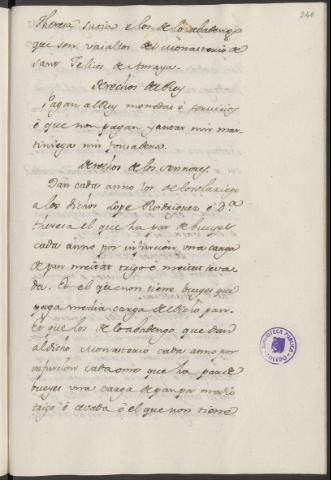 240
Theresa Suria e los de lo abadengo
que son vasallos del Monasterio de
Sant Felices de Amaya.
derechos del Rey
Pagan al Rey monedas é servicios
é que non pagan yantar nin mar
tiniega nin fonsadera.
derechos de los sennores.
Dan cada anno los de lo solariego
a los dichos Lope Rodriguez é D.ª
theresa el que ha par de bueyes
cada anno por infurcion una carga
de pan meitat trigo é meitat ceva-
da. Et el que non tiene bueyes que
paga media carga del dicho pan.
Et que los de lo abadengo, que dan
al dicho Monasterio cada anno por
infurcion cada omo que ha par de
bueyes una carga de pan por medio
trigo é cevada é el que non tiene
BIBLIOTECA PUBLICA